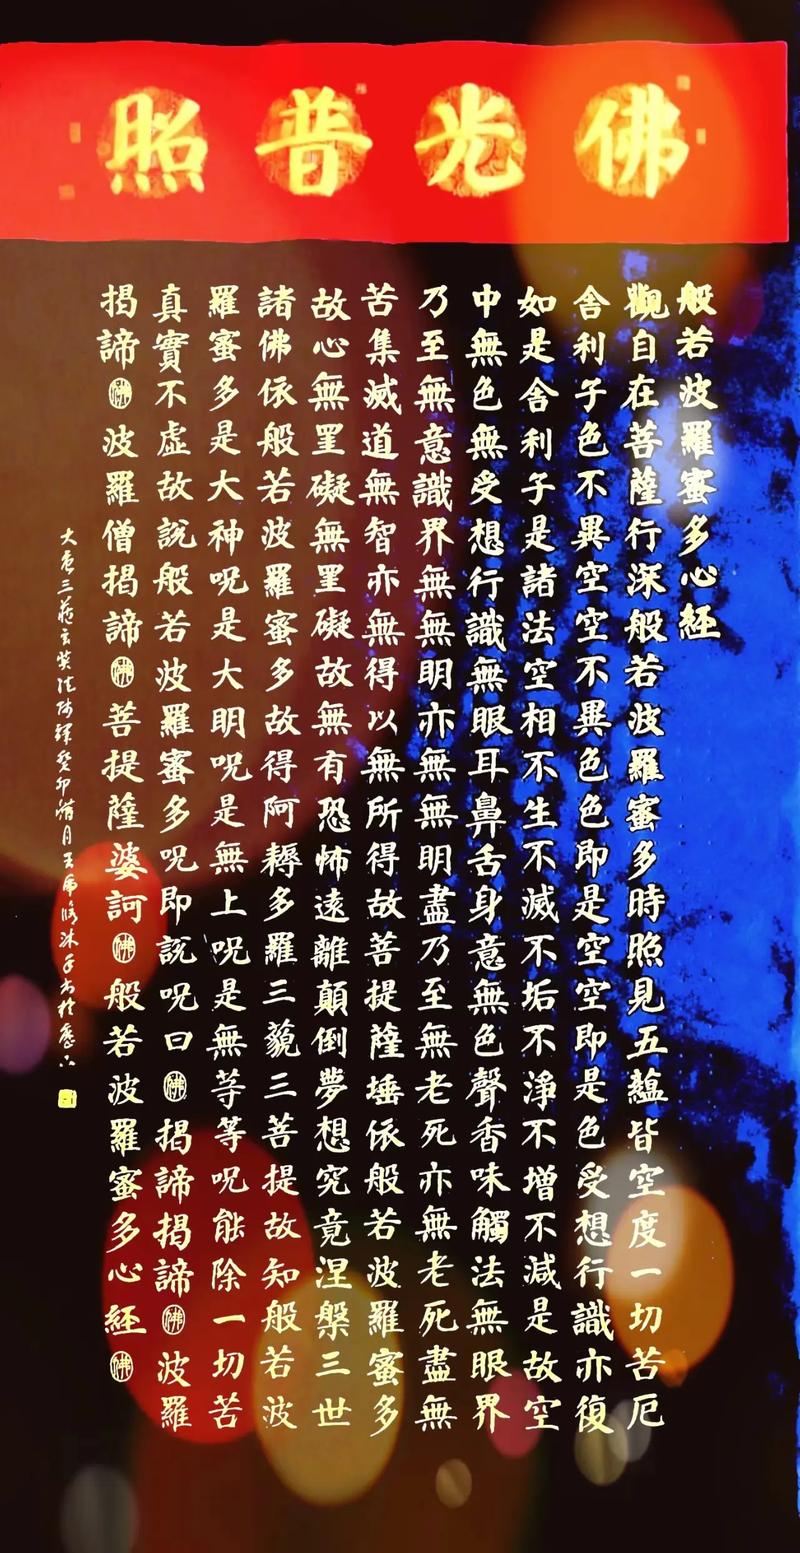 佛光普照
般若波羅蜜多心經
觀自在菩薩行深般若波羅蜜多時照見五蘊皆空度一切苦厄
舍利子色不異空空不異色色即是空空即是色受想行識亦復
如是舍利子是諸法空相不生不滅不垢不淨不增不減是故空
中無色無受想行識無眼耳鼻舌身意無色聲香味觸法無眼界
乃至無意識界無無明亦無無明盡乃至無老死亦無老死盡無
苦集滅道無智亦無得以無所得故菩提薩埵依般若波羅蜜多
故心無罣礙無罣礙故無有恐怖遠離顛倒夢想究竟涅槃三世
諸佛依般若波羅蜜多故得阿耨多羅三藐三菩提故知般若波
羅蜜多是大神呪是大明呪是無上呪是無等等呪能除一切苦
真實不虛故說般若波羅蜜多呪即說呪曰佛揭諦揭諦佛波羅
揭諦佛波羅僧揭諦佛菩提薩婆訶佛般若波羅蜜多心經佛
大唐三藏玄奘法師譯癸卯月沐手書於